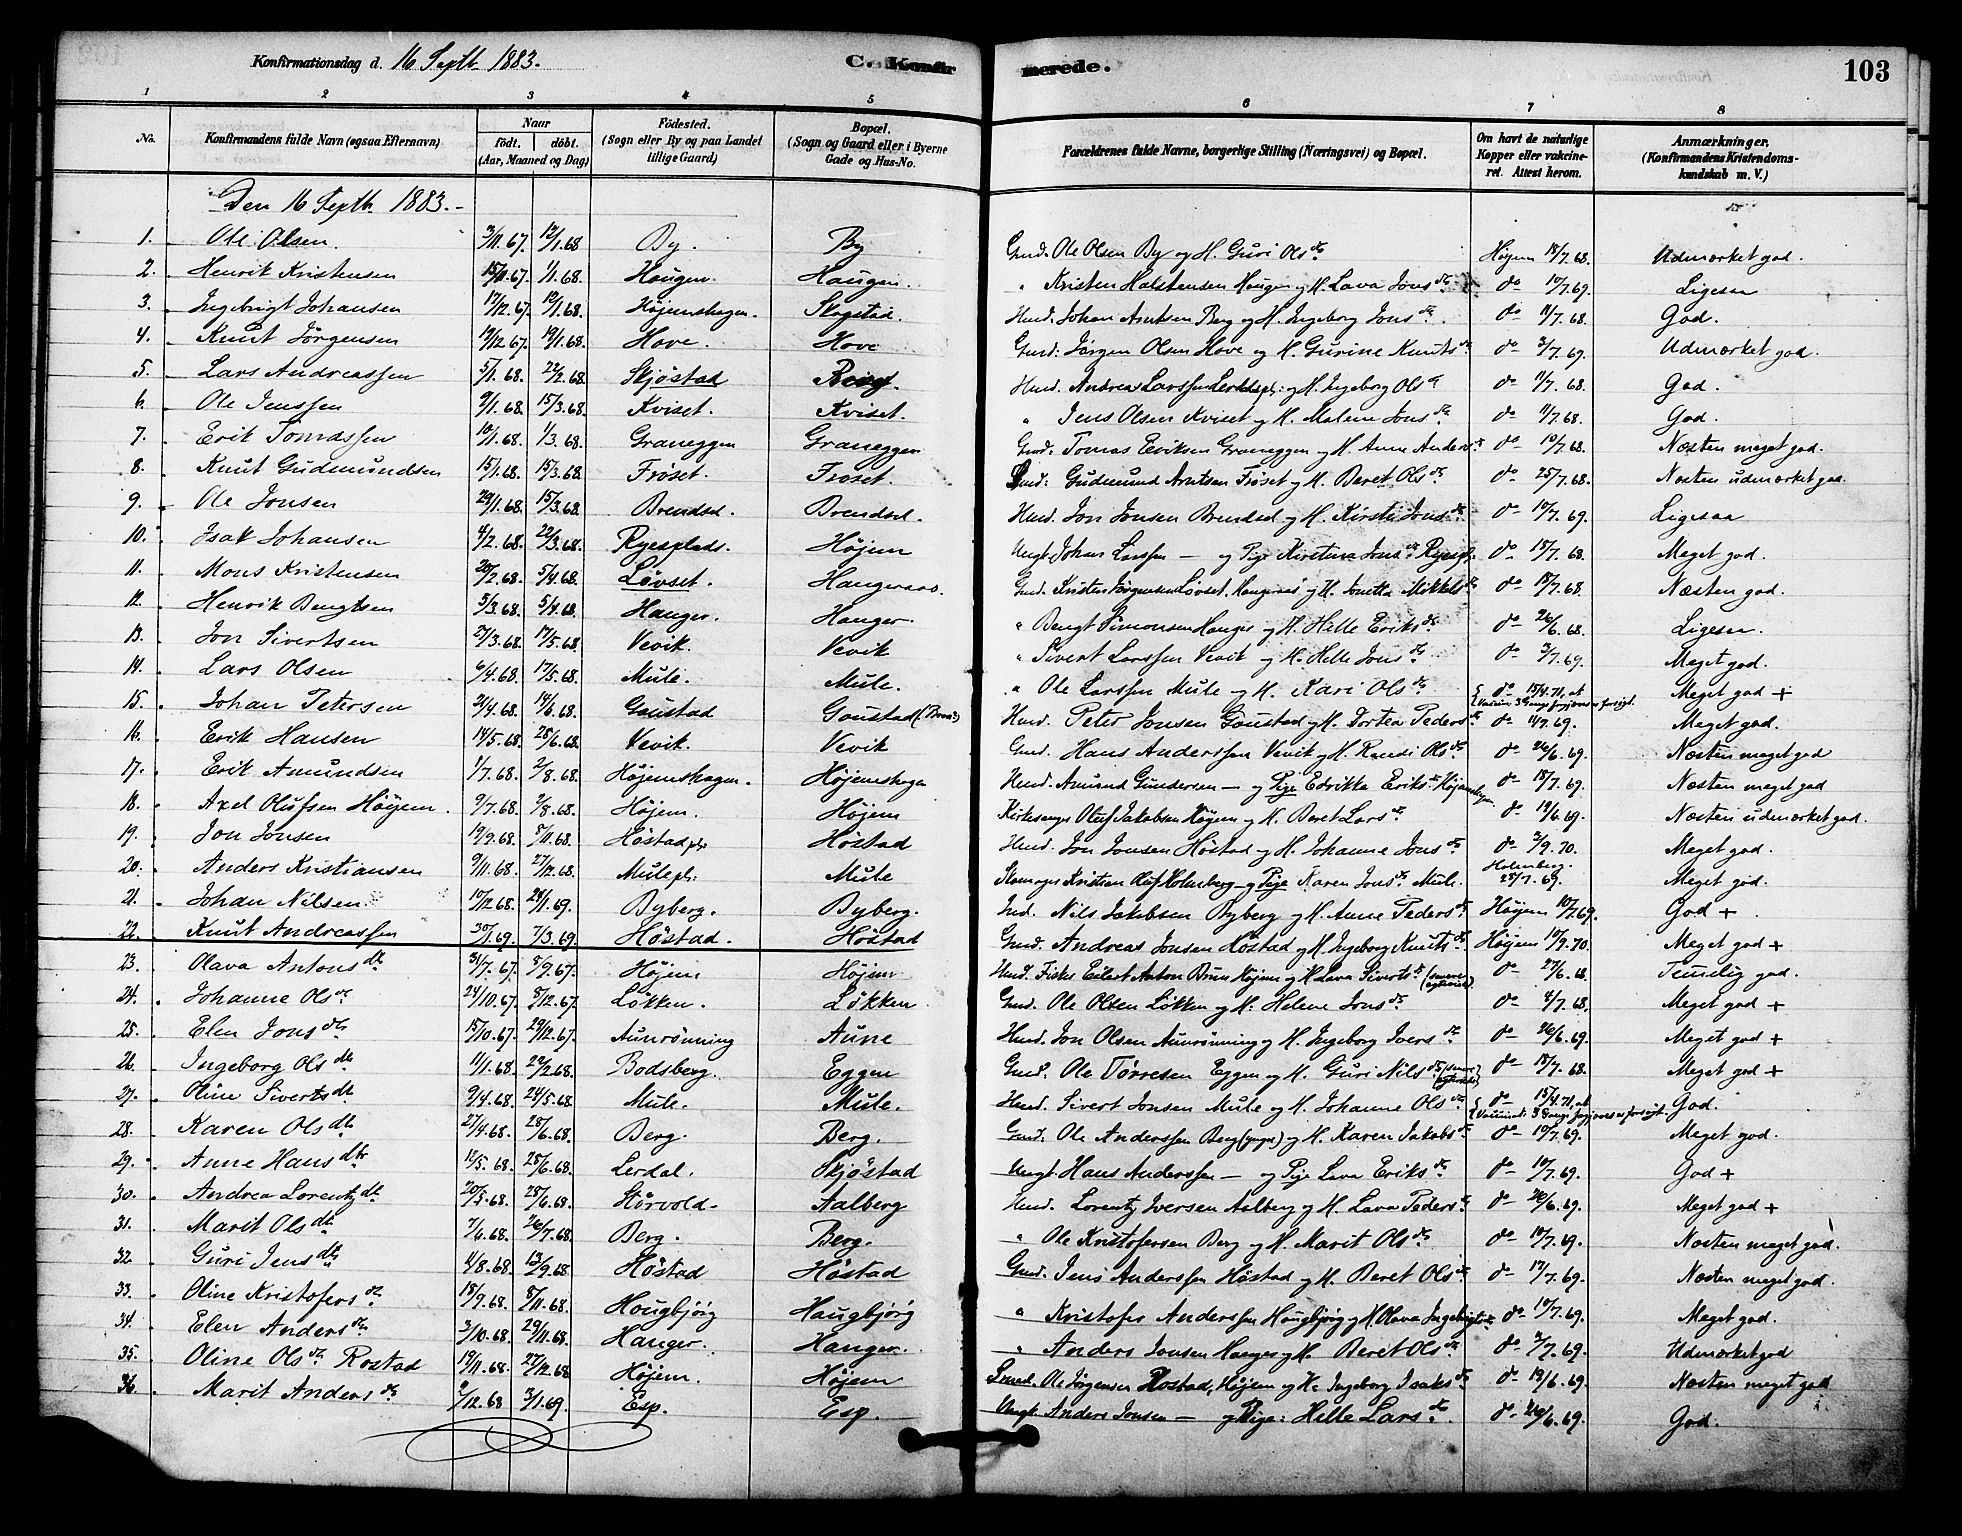 Konfirmationsdag d. 16 Septb. 1883.
C. Konfirmerede.
103
1 2 3 4 5 6 7 8
No. Konfirmandens fulde Navn (ogsaa Efternavn) Naar født. døbt. (Aar, Maaned og Dag) Fødested. (Sogn eller By og paa Landet tillige Gaard) Bopæl. (Sogn og Gaard eller i Byerne Gade og Hus-No. Forældrenes fulde Navne, borgerlige Stilling (Næringsvei) og Bopæl. Om havt de naturlige Kopper eller vakcineret. Attest herom. Anmærkninger. (Konfirmandens Kristendomskundskab m. V.)
Den 16 Septb. 1883.
1. Ole Olsen. 3/11.67. 12/1.68 By. By Gmd. Ole Olsen By og H. Guri Olsdr. Højem 18/7.68. Udmærket god.
2. Henrik Kristensen 15/11.67. 1/1.68. Haugen. Haugen. " Kristen Halstensen Haugen og H. Lava Jonsdr. do 10/7.69. Ligesaa
3. Ingebrigt Johansen 17/12.67. 12/1.68. Højemshagen. Skogstad. Husmd. Johan Arntsen Berg og H. Ingeborg Jonsdr. do 11/7.68. God.
4. Knut Jørgensen 19/12.67. 19/1.68. Hove. Hove Gmd. Jørgen Olsen Hove og H. Gurine Knutsdr. do 3/7.69. Udmærket god.
5. Lars Andreassen 5/1.68. 22/2.68. Skjøstad Berg. Husmd. Andreas Larssen Lerdalspl: og H. Ingeborg Olsdr. do 11/7.68. God.
6. Ole Jenssen 9/1.68. 15/3.68. Kviset. Kviset. " Jens Olsen Kviset og H. Malene Jonsdr. do 11/7.68. God.
7. Erik Tomassen 10/1.68. 1/3.68. Graneggen Graneggen Gmd. Tomas Eriksen Graneggen og H. Anne Andersdr. do 10/7.68. Næsten meget god.
8. Knut Gudmundsen 15/1.68. 15/3.68. Frøset. Frøset. Gmd: Gudmund Arntsen Frøset og H. Beret Olsdr. do 25/7.68. Næsten udmærket god.
9. Ole Jonsen 29/1.68. 15/3.68. Brendsel. Brendsel. Husmd. Jon Jonsen Brendsel og H. Kirsti Jonsdr. do 10/7.69. Ligesaa
10. Isak Johansen 4/2.68. 22/3.68. Ryesplads. Højem Ungk. Johan Larssen — og Pige Kirstina Jonsdr. Ryespl. do 15/7.68. Meget god.
11. Mons Kristensen 20/2.68. 5/4.68. Løvset. Hangeraas. Gmd. Kristen Jørgensen Løvset, Hangeraas og H. Jonetta Mikkelsdr. do 18/7.68. Næsten god.
12. Henrik Bengtsen 5/3.68. 5/4.68. Hanger. Hanger. " Bengt Simonsen Hanger og H. Helle Eriksdr. do 26/6.68. Ligesaa.
13. Jon Sivertsen 27/3.68. 17/5.68. Vevik. Vevik " Sivert Larssen Vevik og H. Helle Jonsdr. do 3/7.69. Meget god.
14. Lars Olsen 6/4.68. 17/5.68. Mule. Mule. " Ole Larssen Mule og H. Kari Olsdr. do 15/4.71, at Vaccin. 3 Gange forgjæves er forsøgt. Meget god +
15. Johan Petersen 21/4.68. 14/6.68. Gaustad Gaustad Husmd. Peter Jonsen Gaustad og H. Dortea Pedersdr. do 11/7.69. Meget god.
16. Erik Hansen 14/5.68. 28/6.68. Vevik. Vevik Gmd. Hans Anderssen Vevik og H. Randi Olsdr. do 26/6.69. Næsten meget god
17. Erik Amundsen 1/7.68. 2/8.68. Højemshagen. Højemshagen Husmd. Amund Gundersen — og Pige Edrikka Eriksdr. Højemshagen. do 18/7.69. Næsten meget god
18. Axel Olufsen Høyem. 9/7.68. 9/8.68. Højem. Højem Kirkesanger Oluf Jakobsen Højem og H. Beret Larsdr. do 19/6.69. Næsten udmærket god.
19. Jon Jonsen 19/9.68. 8/11.68. Høstadpl. Høstad Husmd. Jon Jonsen Høstad og H. Johanne Jonsdr. do 3/9.70. Meget god.
20. Anders Kristiansen 9/11.68. 27/12.68. Mulepl. Mule Skomager Kristian Oluf Holmberg — og Pige Karen Jonsdr. Mule. Holmberg. 28/7.69. Meget god.
21. Johan Nilsen 10/12.68. 24/1.69. Byberg. Byberg. Ind. Nils Jakobsen Byberg og H. Anne Pedersdr. Højem 10/7.69. God +
22. Knut Andreassen 30/1.69. 7/3.69. Høstad. Høstad Gmd. Andreas Jonsen Høstad og H. Ingeborg Knutsdr. Højem 10/9.70. Meget god +
23. Olava Antonsdr. 31/7.67. 8/9.67. Højem Højem Husmd. Fisker Edert Anton Bruu Højem og H. Lava Sivertsdr. do 27/6.68. Temelig god.
24. Johanne Olsdr. 24/10.67. 8/12.67. Løkken. Løkken. Gmd. Ole Olsen Løkken og H. Helene Jonsdr. do 4/7.68. Meget god +
25. Elen Jonsdr. 15/10.67. 29/12.67. Aunrønning Aune Husmd. Jon Olsen Aunrønning og H. Ingeborg Iversdr. do 26/6.69. Meget god +
26. Ingeborg Olsdr. 11/1.68. 22/2.68. Bodsberg. Eggen Gmd. Ole Tørresen Eggen og H. Guri Nilsdr. do 18/7.68. Meget god +
27. Oline Sivertsdr. 9/4.68. 24/5.68 Mule. Mule. Husmd. Sivert Jonsen Mule og H. Johanne Olsdr. do 15/4.71, at Vaccinat: 3 Gange forgjæves er forsøgt. God.
28. Karen Olsdr. 27/4.68. 28/6.68. Berg. Berg. Gmd. Ole Anderssen Berg (yngre) og H. Karen Jakobsdr. do 19/7.69. Meget god.
29. Anne Hansdtr. 12/5.68. 28/6.68. Lerdal. Skjøstad Ungk. Hans Anderssen — og Pige Lava Eriksdr. do 10/7.69. God +
30. Andrea Lorentzdr. 20/5.68. 28/6.68. Størvold. Aalberg Husmd. Lorentz Iversen Aalberg og H. Lava Pedersdr. do 26/6.69. Meget god +
31. Marit Olsdr. 7/6.68. 26/7.68. Berg. Berg. " Ole Kristofersen Berg og H. Marit Olsdr. do 10/7.69. Næsten meget god.
32. Guri Jensdr. 4/8.68. 13/9.68. Høstad Høstad Gmd. Jens Anderssen Høstad og H. Beret Olsdr. do 17/7.69. Næsten meget god.
33. Oline Kristofersdr. 18/9.68. 8/11.68. Hougbjørg Haugbjørg " Kristofer Anderssen Haugbjørg og H. Olava Ingebrigtsdr. do 10/7.69. Meget god.
34. Elen Andersdr. 3/10.68. 29/11.68. Hanger. Hanger. " Anders Jonsen Hanger og H. Beret Olsdr. do 3/7.69. Udmærket god
35. Oline Olsdr. Rostad 19/11.68. 27/12.68 Højem. Højem Smed. Ole Jørgensen Rostad, Højem og H. Ingeborg Isaksdr. do 19/6.69. Næsten meget god
36. Marit Andersdr. 2/12.68 3/1.69. Esp. Esp. Ungk. Anders Jonsen — og Pige: Helle Larsdr. do 26/6.69. God.